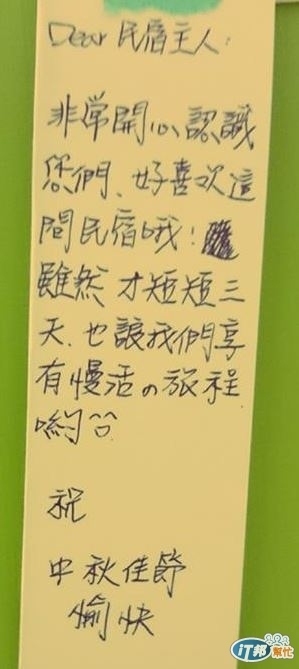 Dear 民宿主人:
非常開心認識
您們、好喜欢這
間民宿哦!
雖然 才短短三
天、也讓我們享
有慢活の旅程
喲^^
祝
中秋佳節
愉快
iT邦幫忙